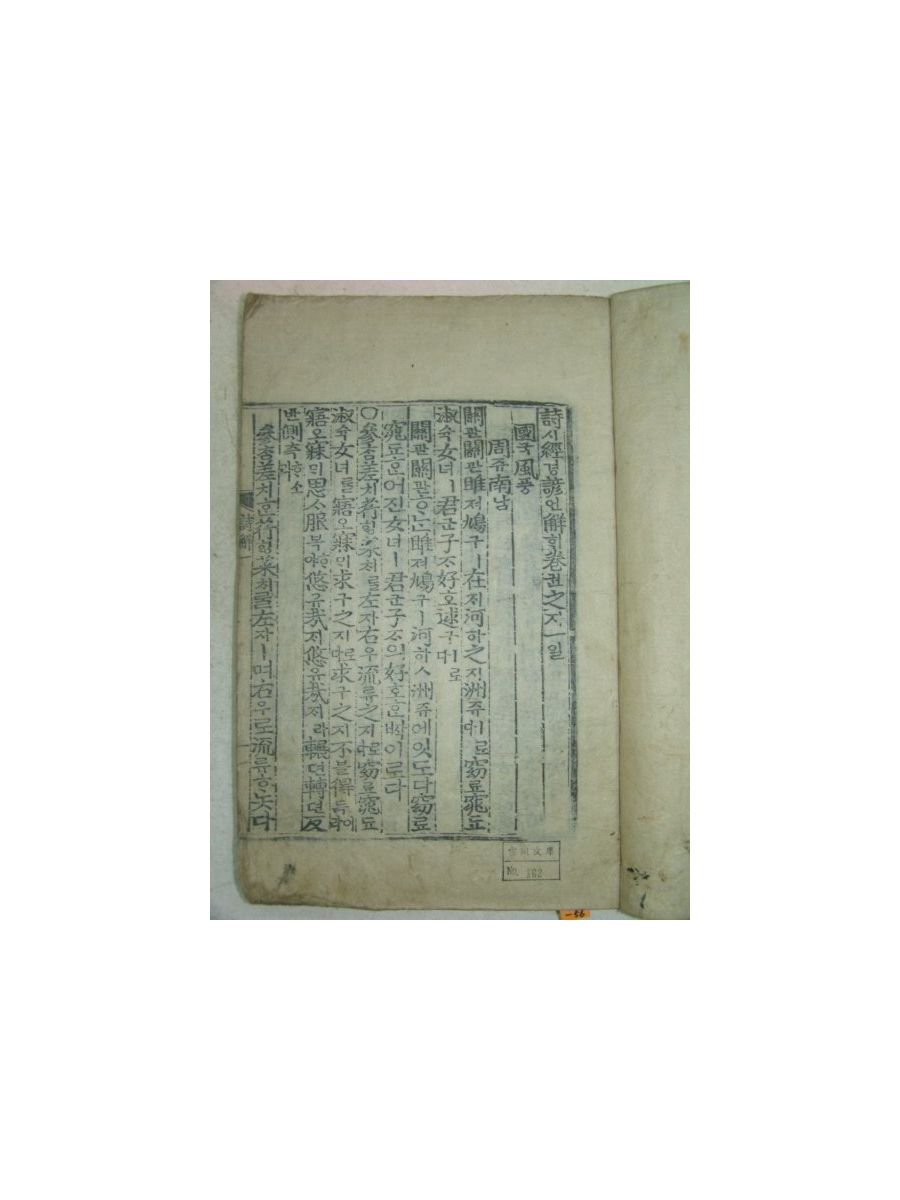 詩시經경諺언解ᄒᆡ卷권之지一일
國국風풍
周쥬南남
關관關관雎져鳩구ㅣ在ᄌᆡ河하之지洲쥬ㅣ로다窈요窕됴
淑슉女녀ㅣ君군子ᄌᆞ好호逑구ㅣ로다
關관關관ᄒᆞᄂᆞᆫ雎져鳩구ㅣ河하ㅅ洲쥬에잇도다窈요
窕됴ᄒᆞᆫ어진女녀ㅣ君군子ᄌᆞ의好호ᄒᆞᆫᄧᅡᆨ이로다
○參ᄎᆞᆷ差치荇ᄒᆡᆼ菜ᄎᆡ를左자右우流류之지로다窈요窕됴
淑슉女녀를寤오寐ᄆᆡ求구之지로다求구之지不블得득이라
寤오寐ᄆᆡ思ᄉᆞ服복ᄒᆞ야悠유哉ᄌᆡ悠유哉ᄌᆡ라輾뎐轉뎐反
반側측ᄒᆞ소라
參ᄎᆞᆷ差치ᄒᆞᆫ荇ᄒᆡᆼ菜ᄎᆡ를左자ㅣ며右우로流류ᄒᆞ놋다
詩解 一
文庫
No. 162
-56